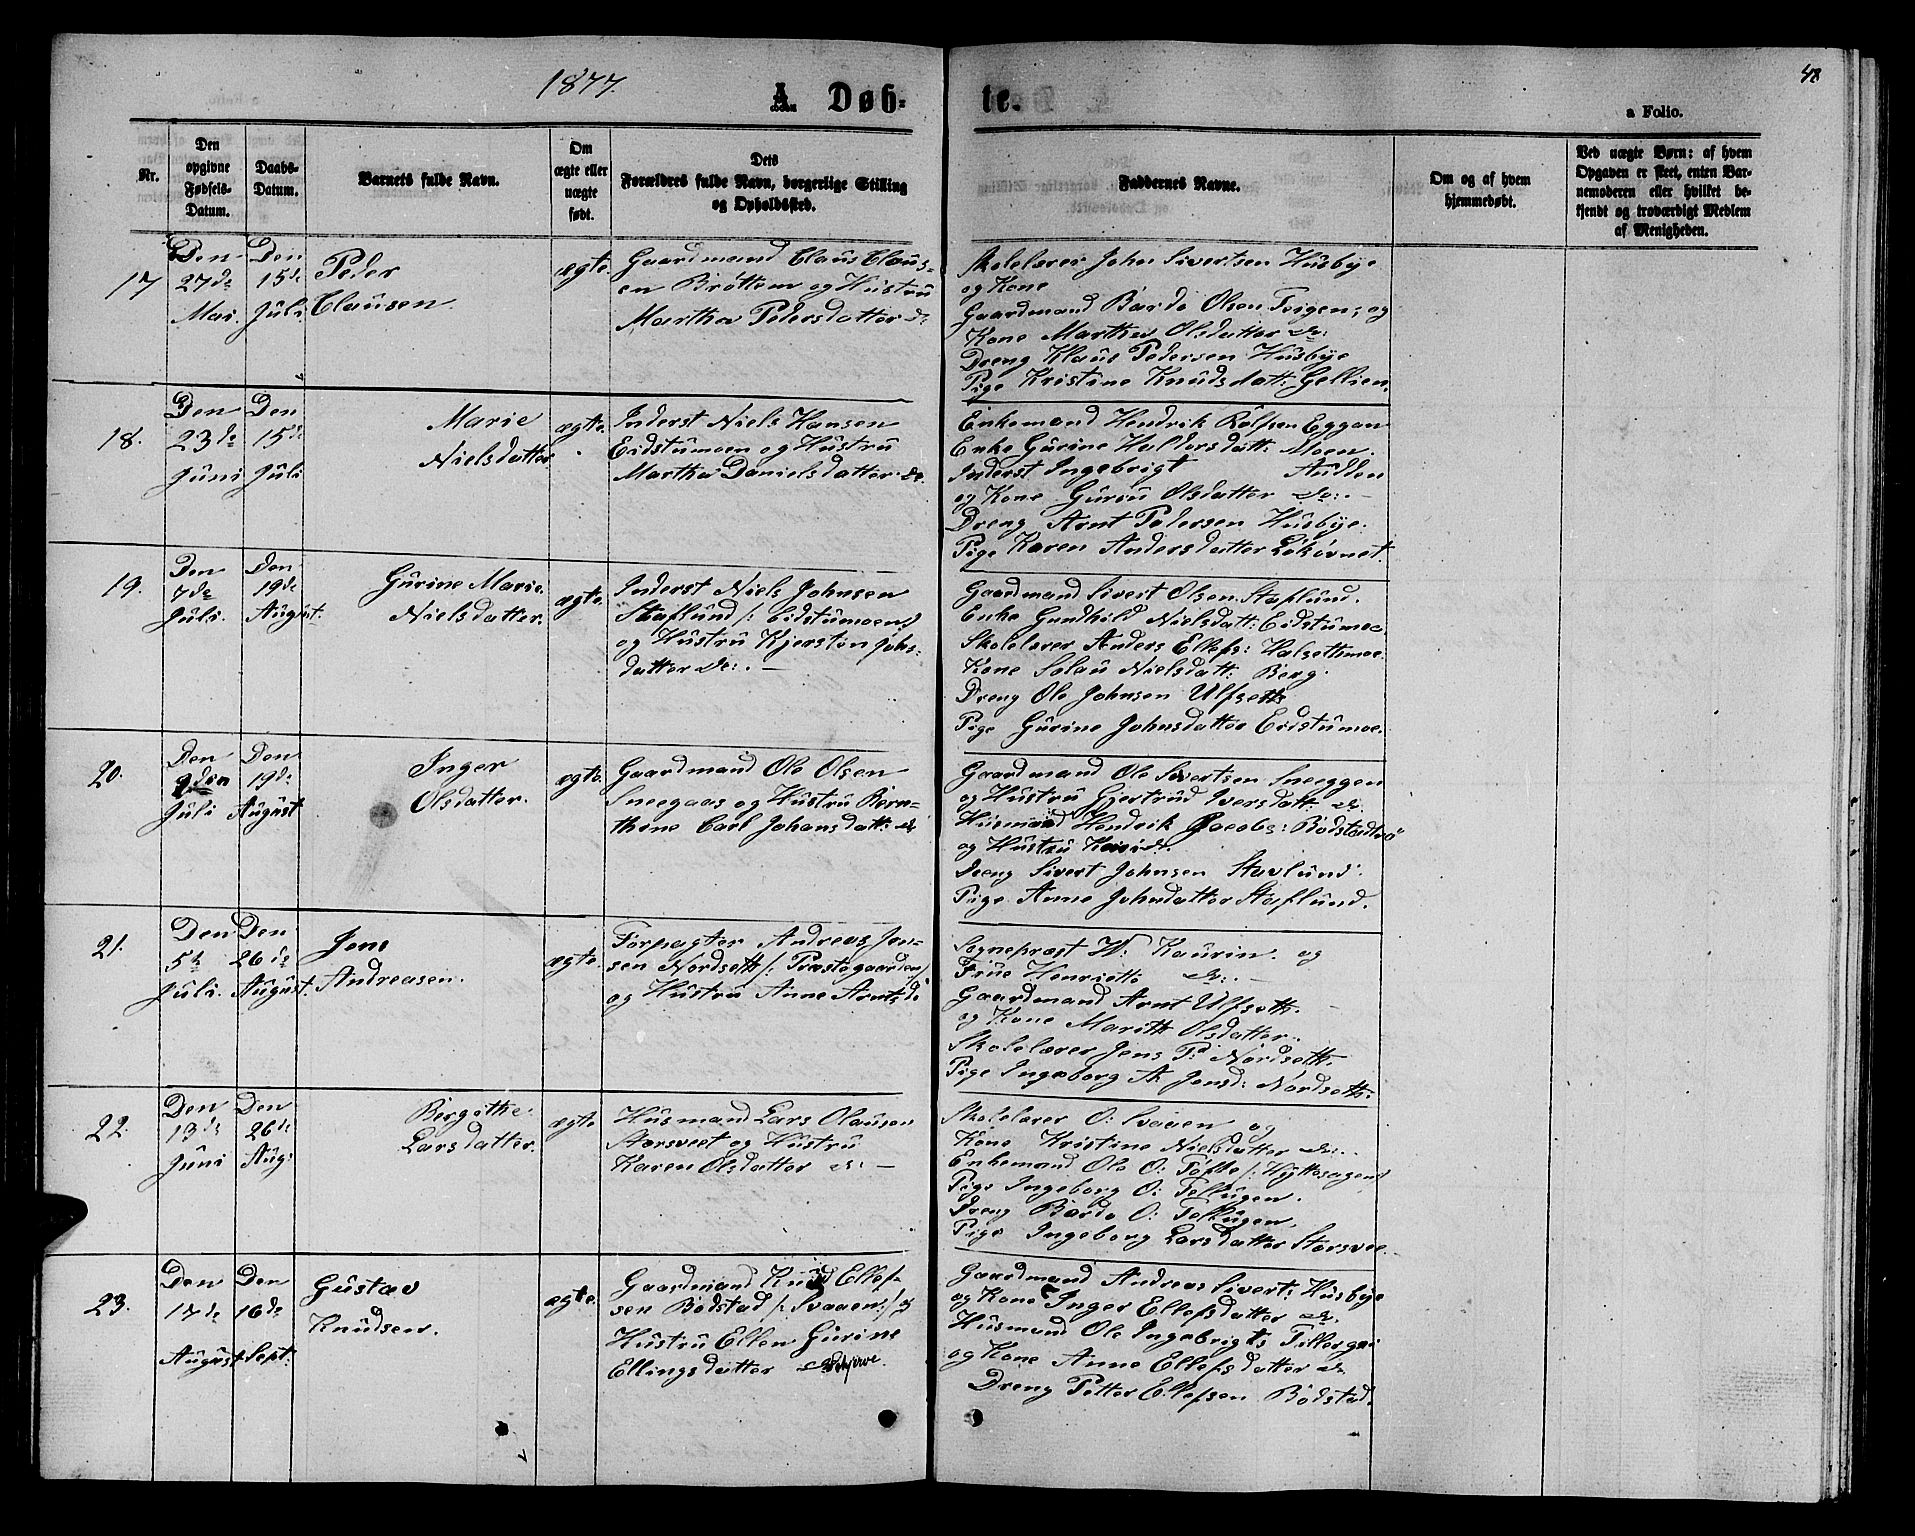 1877.
A Døb-
te.
48
a Folio.
Nr.
Den
opgivne
Fødsels-
Datum.
Daabs-
Datum.
Barnets fulde Navn.
Om
ægte eller
uægte
født.
Dets
Forældres fulde Navn, borgerlige Stilling
og Opholdssted.
Faddernes Navne.
Om og af hvem
hjemmedøbt.
Ved uægte Børn: af hvem
Opgaven er skeet, enten Bar-
nemoderen eller hvilket be-
kjendt og troværdigt Medlem
af Menigheden.
17
Den
27de
Mai.
Den
15de
Juli.
Peder
Clausen.
ægte.
Gaardmand Claus Claus-
en Brøttem og Hustru
Martha Pedersdatter do
Skolelærer John Sivertsen Husbye
og Kone
Gaardmand Bardo Olsen Teigen; og
Kone Martha Olsdatter do:
Dreng Klaus Pedersen Husbye
Pige Kristine Knudsdatt: Gellien.
18.
Den
23de
Juni
Den
15de
Juli
Marie
Nielsdatter
ægte.
Inderst Niels Hansen
Eidstumoen og Hustru
Martha Danielsdatter do.
Enkemand Hendrik Rolfsen Eggan
Enke Gurine Haldorsdatt: Moen.
Inderst Ingebrigt Aulden
og Kone Guru Olsdatter do: -
Dreng Arnt Pedersen Husbye.
Pige Karen Andersdatter Løkøvnet.
19.
Den
7de
Juli.
Den
19de
August.
Gurine Marie
Nielsdatter.
ægte.
Inderst Niels Johnsen
Staflund /: Eidstumoen
og Hustru Kjersten Johs:
datter do: . -
Gaardmand Sivert Olsen Staflund.
Enke Gundhild Nielsdatt: Eidstumoe
Skolelærer Anders Ellefs: Halsetsmoe.
Kone Solau Nielsdatt: Berg.
Dreng Ole Johnsen Ulfseth
Pige Gurine Johnsdatter Eidstumoe.
20.
Den
9den
Juli
Den
19de
August
Inger
Olsdatter.
ægte.
Gaardmand Ole Olsen
Sneegaas og Hustru Bern-
thine Carl Johansdatt: do
Gaardmand Ole Sivertsen Sneeggen
og Hustru Gjertrud Iversdatt: do.
Husmand Hendrik Jacobs: Bødstadvo
og Hustru Kari do.
Dreng Sivert Johnsen Stavlund.
Pige Anne Johnsdatter Staflund.
21.
Den
5te
Juli.
Den
26de
August.
Jens
Andreasen.
ægte.
Forpagter Andreas Jen-
sen Nordseth /: Præstegaarden/
og Hustru Anne Arntsd:
Sognepræst W. Kaurin. og
Frue Henriette do: . -
Gaardmand Arnt Ulfseth. -
og Kone Marith Olsdatter.
Skolelærer Jens P: Nordseth.
Pige Ingeborg A. Jensd: Nordseth:
22.
Den
13de
Juni
Den
26de
Aug:
Bergithe
Larsdatter.
ægte
Husmand Lars Olausen
Storsveet og Hustru
Karen Olsdatter do: -
Skolelærer O: Svaaen og
Kone Kristine Nielsdatter do: .
Enkemand Ole O: Tøfte /: Hyttesagen/
Pige Ingeborg O: Tellugen.
Dreng Bardo O: Tellugen.
Pige Ingeborg Larsdatter Storsvee
23.
Den
17de
August
Den
16de
Sept:
Gustav
Knudsen.
ægte.
Gaardmand Knud Ellef-
sen Bødstad /: Svaaen :/ og
Hustru Ellen Gurine
Ellingsdatter
Gaardmand Andreas Siverts: Husbye
og Kone Inger Ellefsdatter do.
Husmand Ole Ingebrigts Tiller
og Kone Anne Ellefsdatter do
Dreng Petter Ellefsen Bødstad.